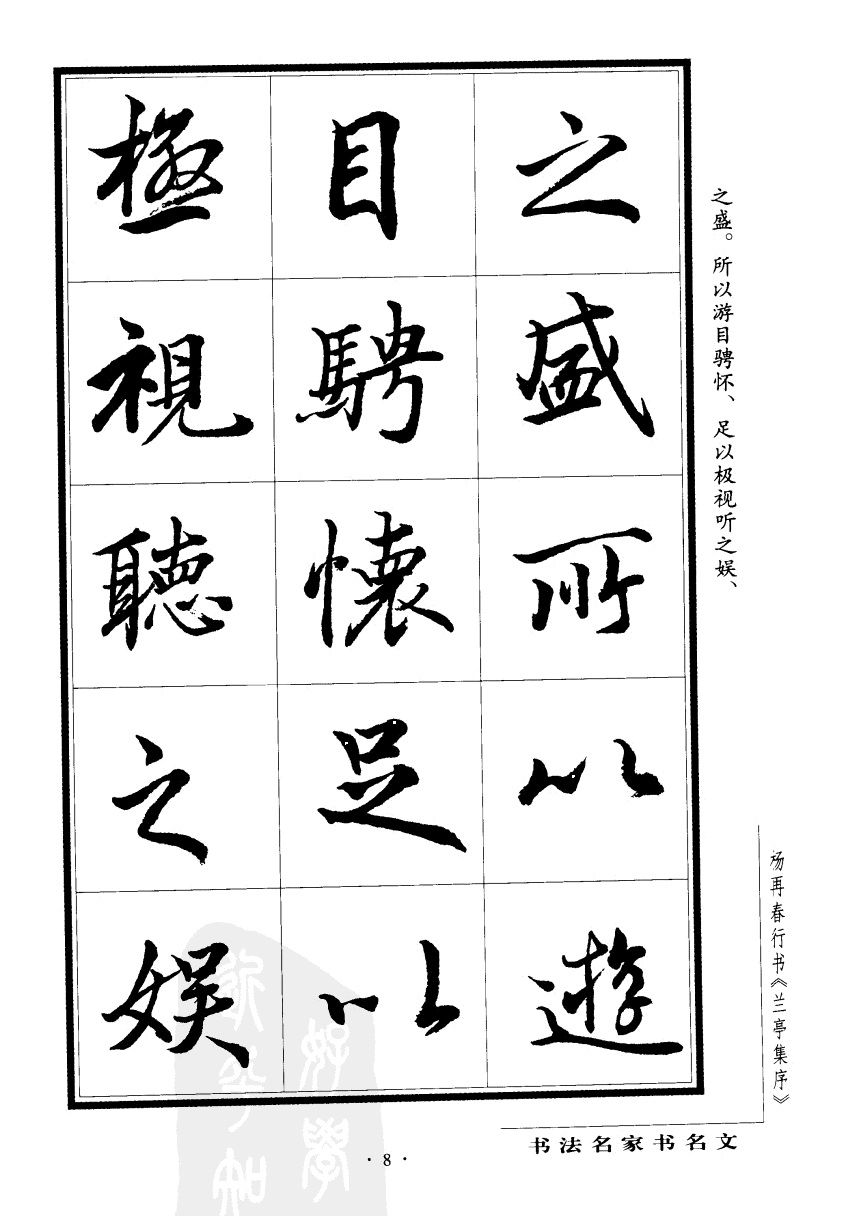 之盛所以遊
目騁懷足以
極視聽之娱
之盛。所以游目骋怀、足以极视听之娱、
杨再春行书《兰亭集序》
书法名家书名文
·8·